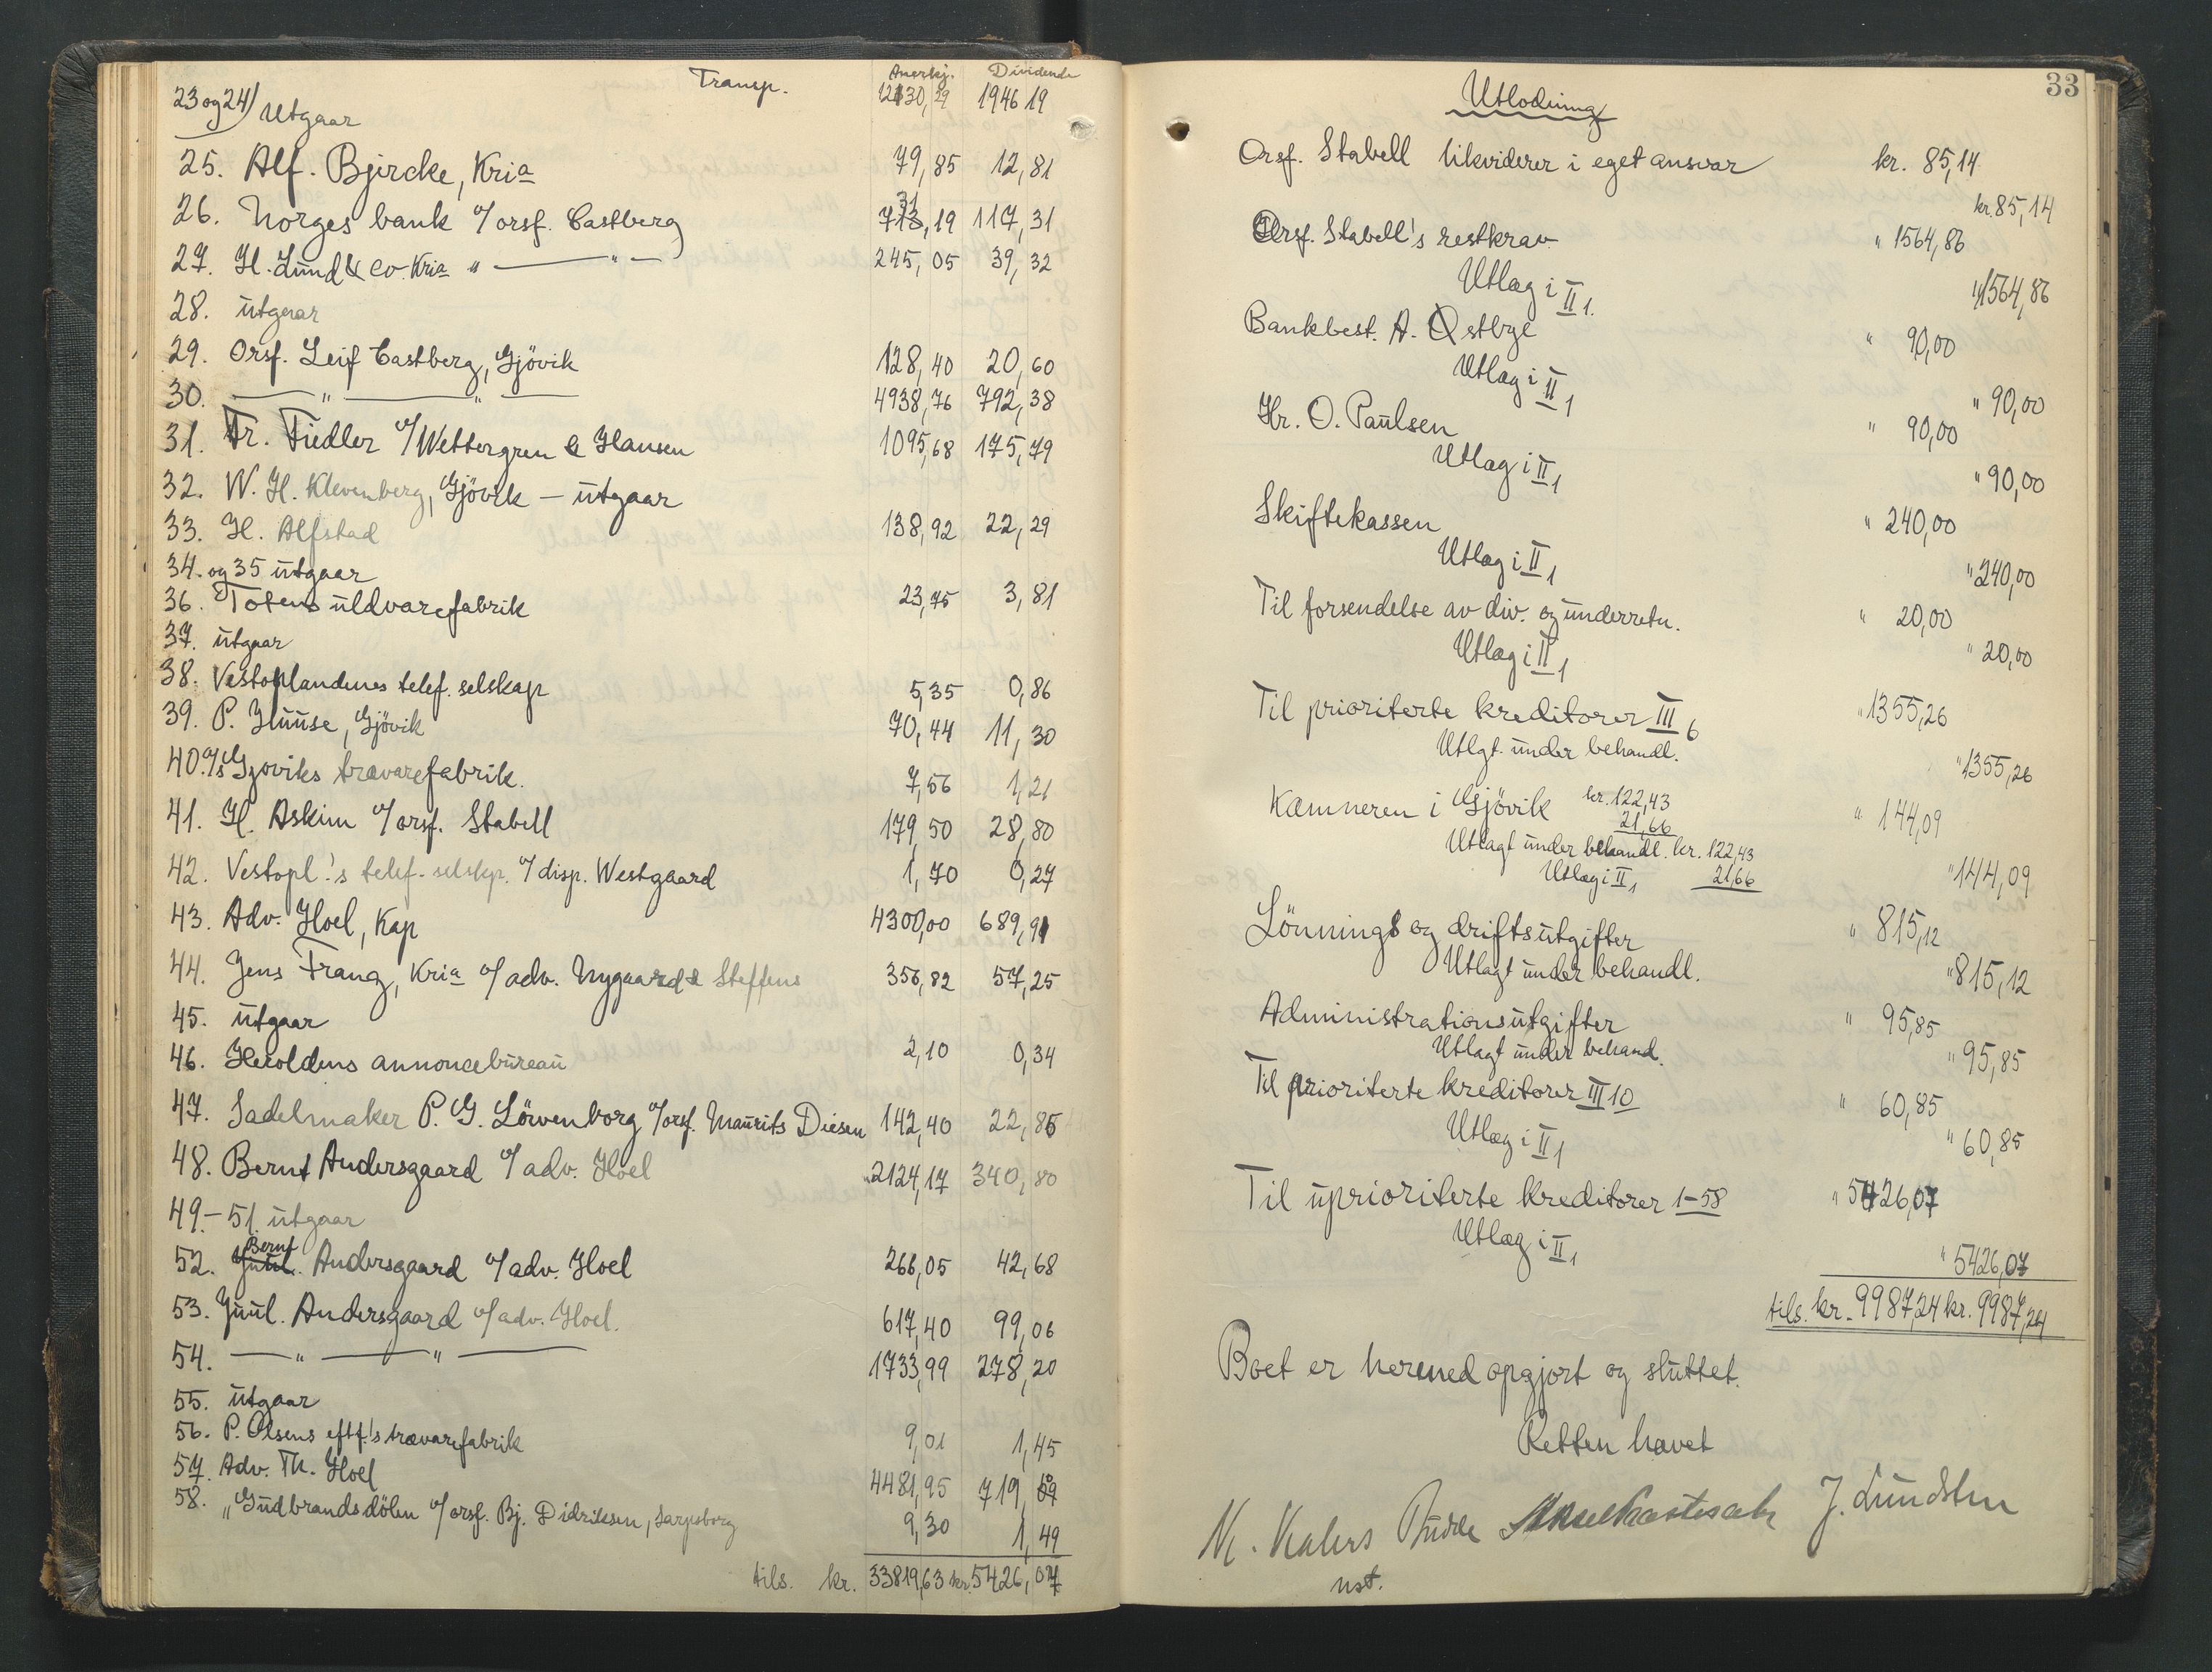 Transp. Anerkj. Dividende
23 og 24) Utgaar 12130,29 1946 19
25. Alf. Bjercke, Kria 79,85 12,81
26. Norges bank o/ orsf. Castberg 731,19 117,31
27. H. Lund & Co. Kria " — " — 245,05 39,32
28. utgaar
29. Orsf. Leif Castberg, Gjövik 128,40 20,60
30. — " — " — 4938,76 792,38
31. Fr. Fiedler o/ Wettergren & Hansen 1095,68 175,79
32. W. H. Klevenberg, Gjövik – utgaar
33. H. Alfstad 138,92 22,29
34. og 35 utgaar
36. Totens uldvarefabrik 23,75 3,81
37. utgaar
38. Vestoplandenes telef. selskap 5,35 0,86
39. P. Huuse, Gjövik 70,44 11,30
40. A/s Gjøviks trævarefabrik. 7,56 1,21
41. H. Askim o/ orsf. Stabell 179,50 28,80
42. Vestopl.'s telef. selskp. o/ disp. Westgaard 1,70 0,27
43. Adv. Hoel, Kap 4300,00 689,91
44. Jens Frang, Kria o/ adv. Nygaard & Steffens 356,82 57,25
45. utgaar
46. Heroldens annoncebureau 2,10 0,34
47. Sadelmaker P. G. Löwenborg o/ orsf. Maurits Diesen 142,40 22,86
48. Bernt Andersgaard o/ adv. Hoel 2124,17 340,80
49.–51. utgaar
52. Bernt Andersgaard o/ adv. Hoel 266,05 42,68
53. Juul. Andersgaard o/ adv. Hoel. 617,40 99,06
54. — " — " — 1733,99 278,20
55. utgaar
56. P. Olsens eftf.'s trævarefabrik 9,01 1,45
57. Adv. Th. Hoel 4481,95 719,09
58. „Gudbrandsdölen o/ orsf. Bj. Didriksen, Sarpsborg 9,30 1,49
tils. kr. 33819,63 kr. 5426,07
33
Utlodning
Orsf. Stabell likviderer i eget ansvar kr. 85,14
kr. 85,14
Orsf. Stabell's restkrav " 1564,86
Utlæg i II 1. " 1564,86
Bankbest. A. Østbye " 90,00
Utlæg i II 1 " 90,00
Hr. O. Paulsen " 90,00
Utlæg i II 1 " 90,00
Skiftekassen " 240,00
Utlæg i II 1 " 240,00
Til forsendelse av div. og underretn. " 20,00
Utlæg i II 1 " 20,00
Til prioriterte kreditorer III 6 " 1355,26
Utlgt. under behandl. " 1355,26
Kæmneren i Gjövik kr. 122,43 " 144,09
21,66
Utlagt under behandl. kr. 122,43
Utlæg i II 1 21,66 " 144,09
Lönnings og driftsutgifter " 815,12
Utlagt under behandl. " 815,12
Administrationsutgifter " 95,85
Utlagt under behand. " 95,85
Til prioriterte kreditorer III 10 " 60,85
Utlæg i II 1 " 60,85
Til uprioriterte kreditorer 1–58 " 5426,07
Utlæg i II 1 " 5426,07
tils. kr. 9987,24 kr. 9987,24
Boet er hermed opgjort og sluttet.
Retten hævet
J. Lundsten
nst.